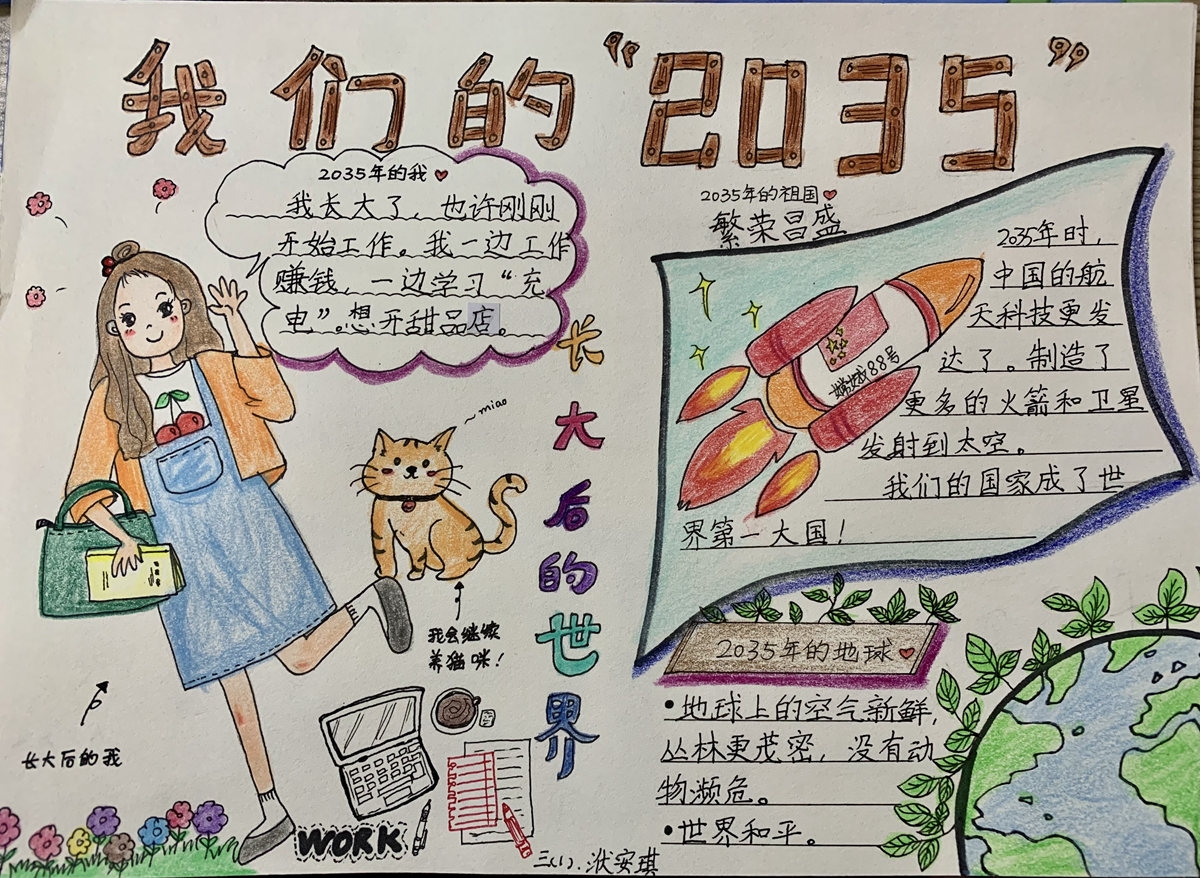 我们的“2035”
2035年的我
我长大了，也许刚刚
开始工作。我一边工作
赚钱，一边学习“充
电”想开甜品店。
长大后的世界
miao
我会继续
养猫咪！
长大后的我
WORK
2035年的祖国
繁荣昌盛
88号
2035年时，
中国的航
天科技更发
达了。制造了
更多的火箭和卫星
发射到太空。
我们的国家成了世
界第一大国！
2035年的地球
•地球上的空气新鲜，
丛林更茂密，没有动
物濒危。
•世界和平。
安琪